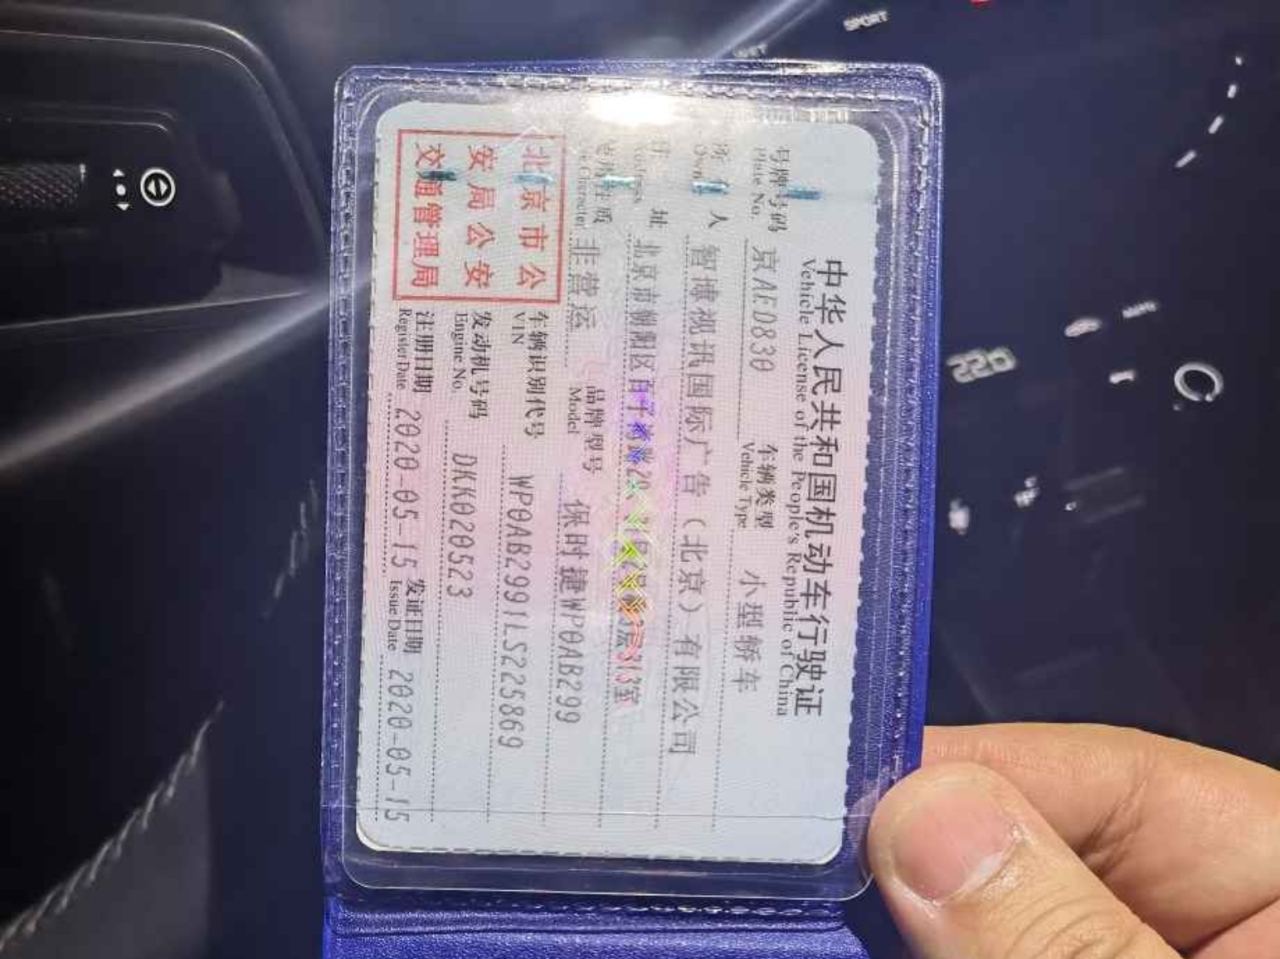 中华人民共和国机动车行驶证
Vehicle License of the People's Republic of China
号牌号码 京AED830 车辆类型 小型轿车
Plate No. Vehicle Type
所有人 智博视讯国际广告（北京）有限公司
Owner
住址 北京市朝阳区百子湾路29 3层313室
Address
使用性质 非营运 品牌型号 保时捷WP0AB299
Use Character Model
北京市公
安局公安
交通管理局
车辆识别代号 WP0AB2991LS225869
VIN
发动机号码 DKK020523
Engine No.
注册日期 2020-05-15 发证日期 2020-05-15
Register Date Issue Date
SPORT
WET
220